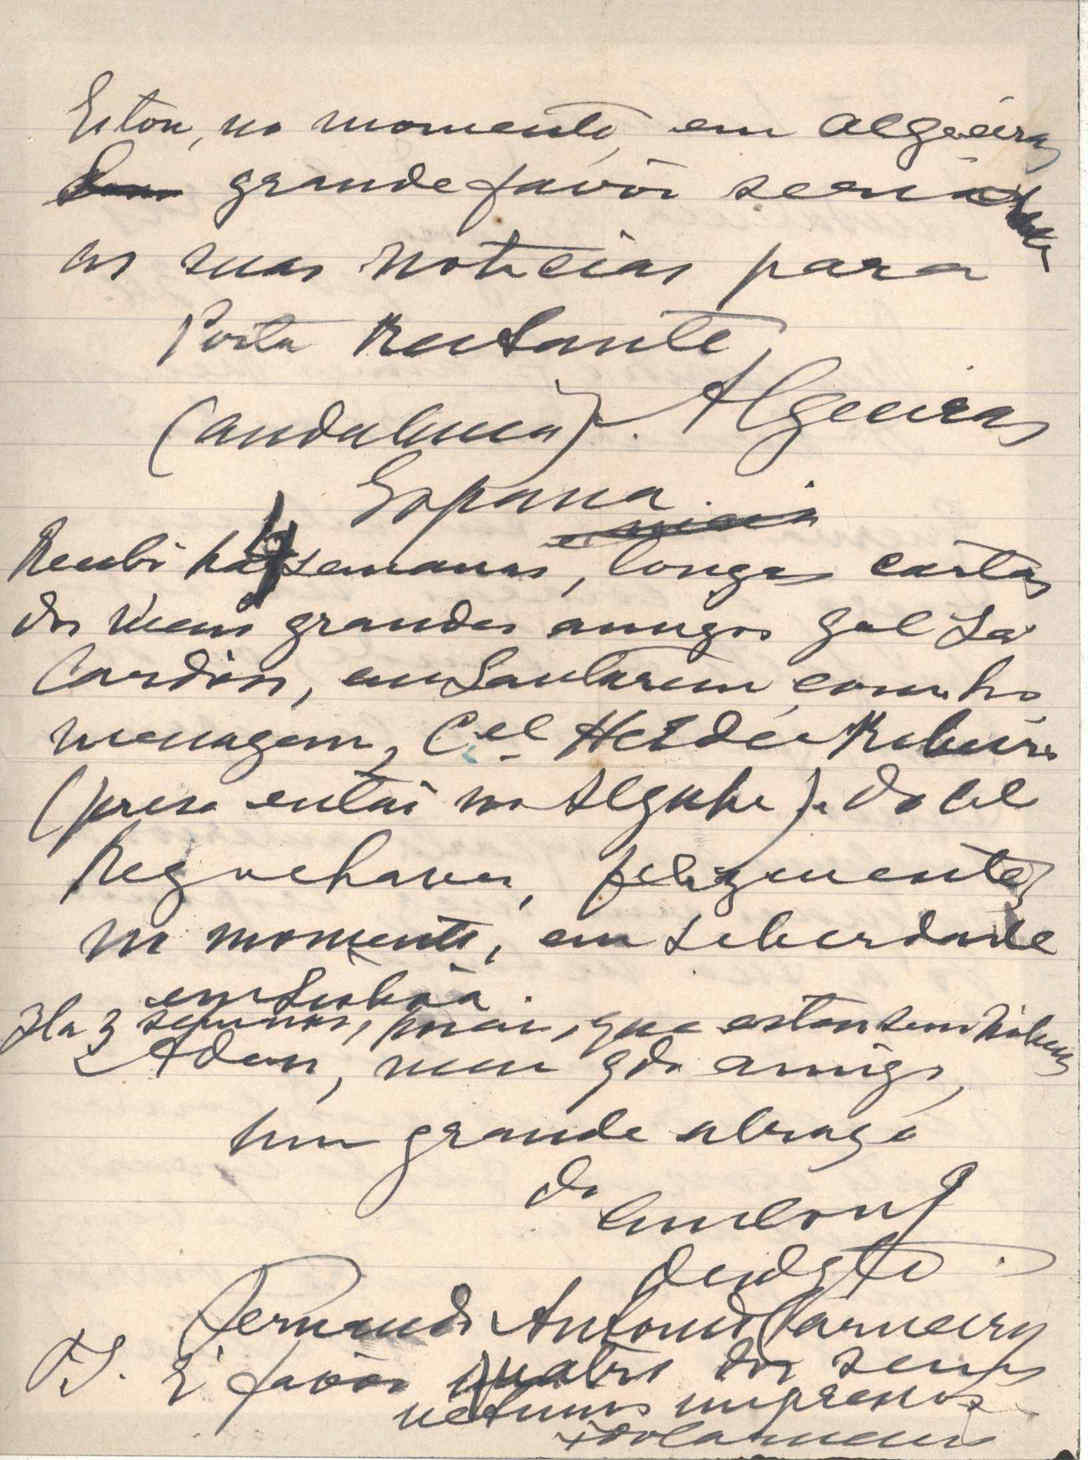 Estou, no momento, em Algeciras
grande favôr seria
as suas noticias para
Posta Restante,
(Andaluzia). Algeciras
Espana.
Recebi há semanas, longas cartas
dos meus grandes amigos Gal Sá
Cardoso, em Santarem, com ho
menagem, Cel Helder Ribeiro
(preso então no Aljube) e do Cel
felizmente,
no momento, em Liberdade
em Lisbôa.
Ha 3 semanas, porém, que estou sem
Adeus, meu gde amigo,
um grande abraço
do
Fernando Antonio Carneiro
E' favôr dos seus
ultimos impressos